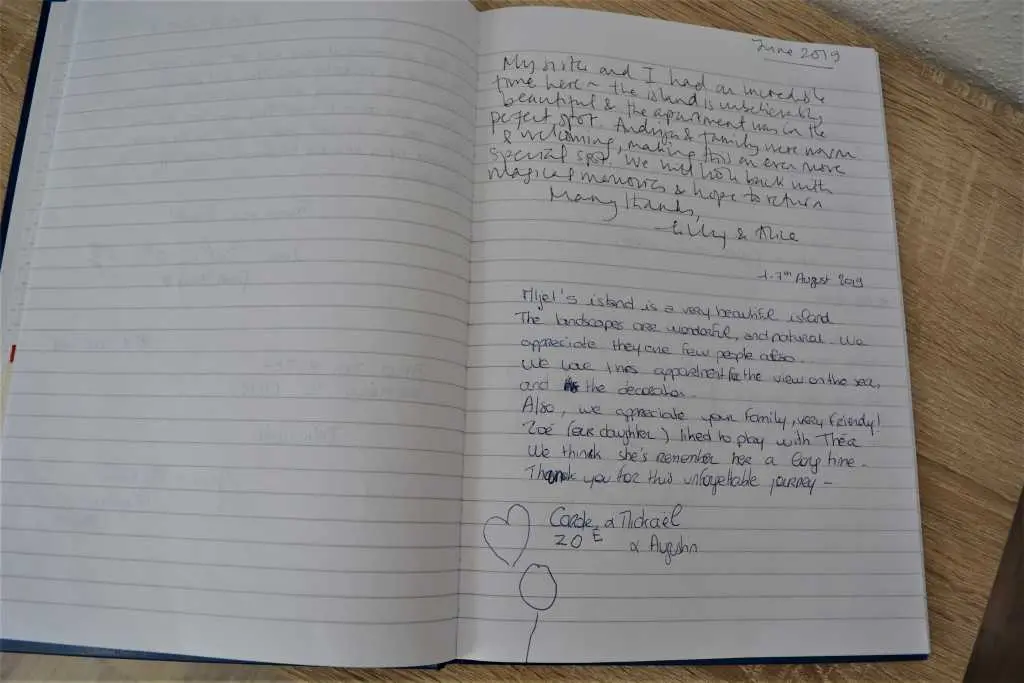 June 2019
My sister and I had an incredible
time here ~ the island is unbelievably
beautiful & the apartment was in the
perfect spot. Andrija & family were warm
& welcoming, making this an even more
special spot. We will look back with
magical memories & hope to return
Many thanks,
Lilly & Alice
1-7th August 2019
Mljet's island is a very beautiful island
The landscapes are wonderful, and natural. We
appreciate they are few people also.
We love this appartment for the view on the sea,
and the decoration.
Also, we appreciate your family, very friendly!
Zoé (our daughter) liked to play with Théa
We think she's remember her a long time.
Thank you for this unforgettable journey -
Carole & Mickaël
ZOÉ & Augustin